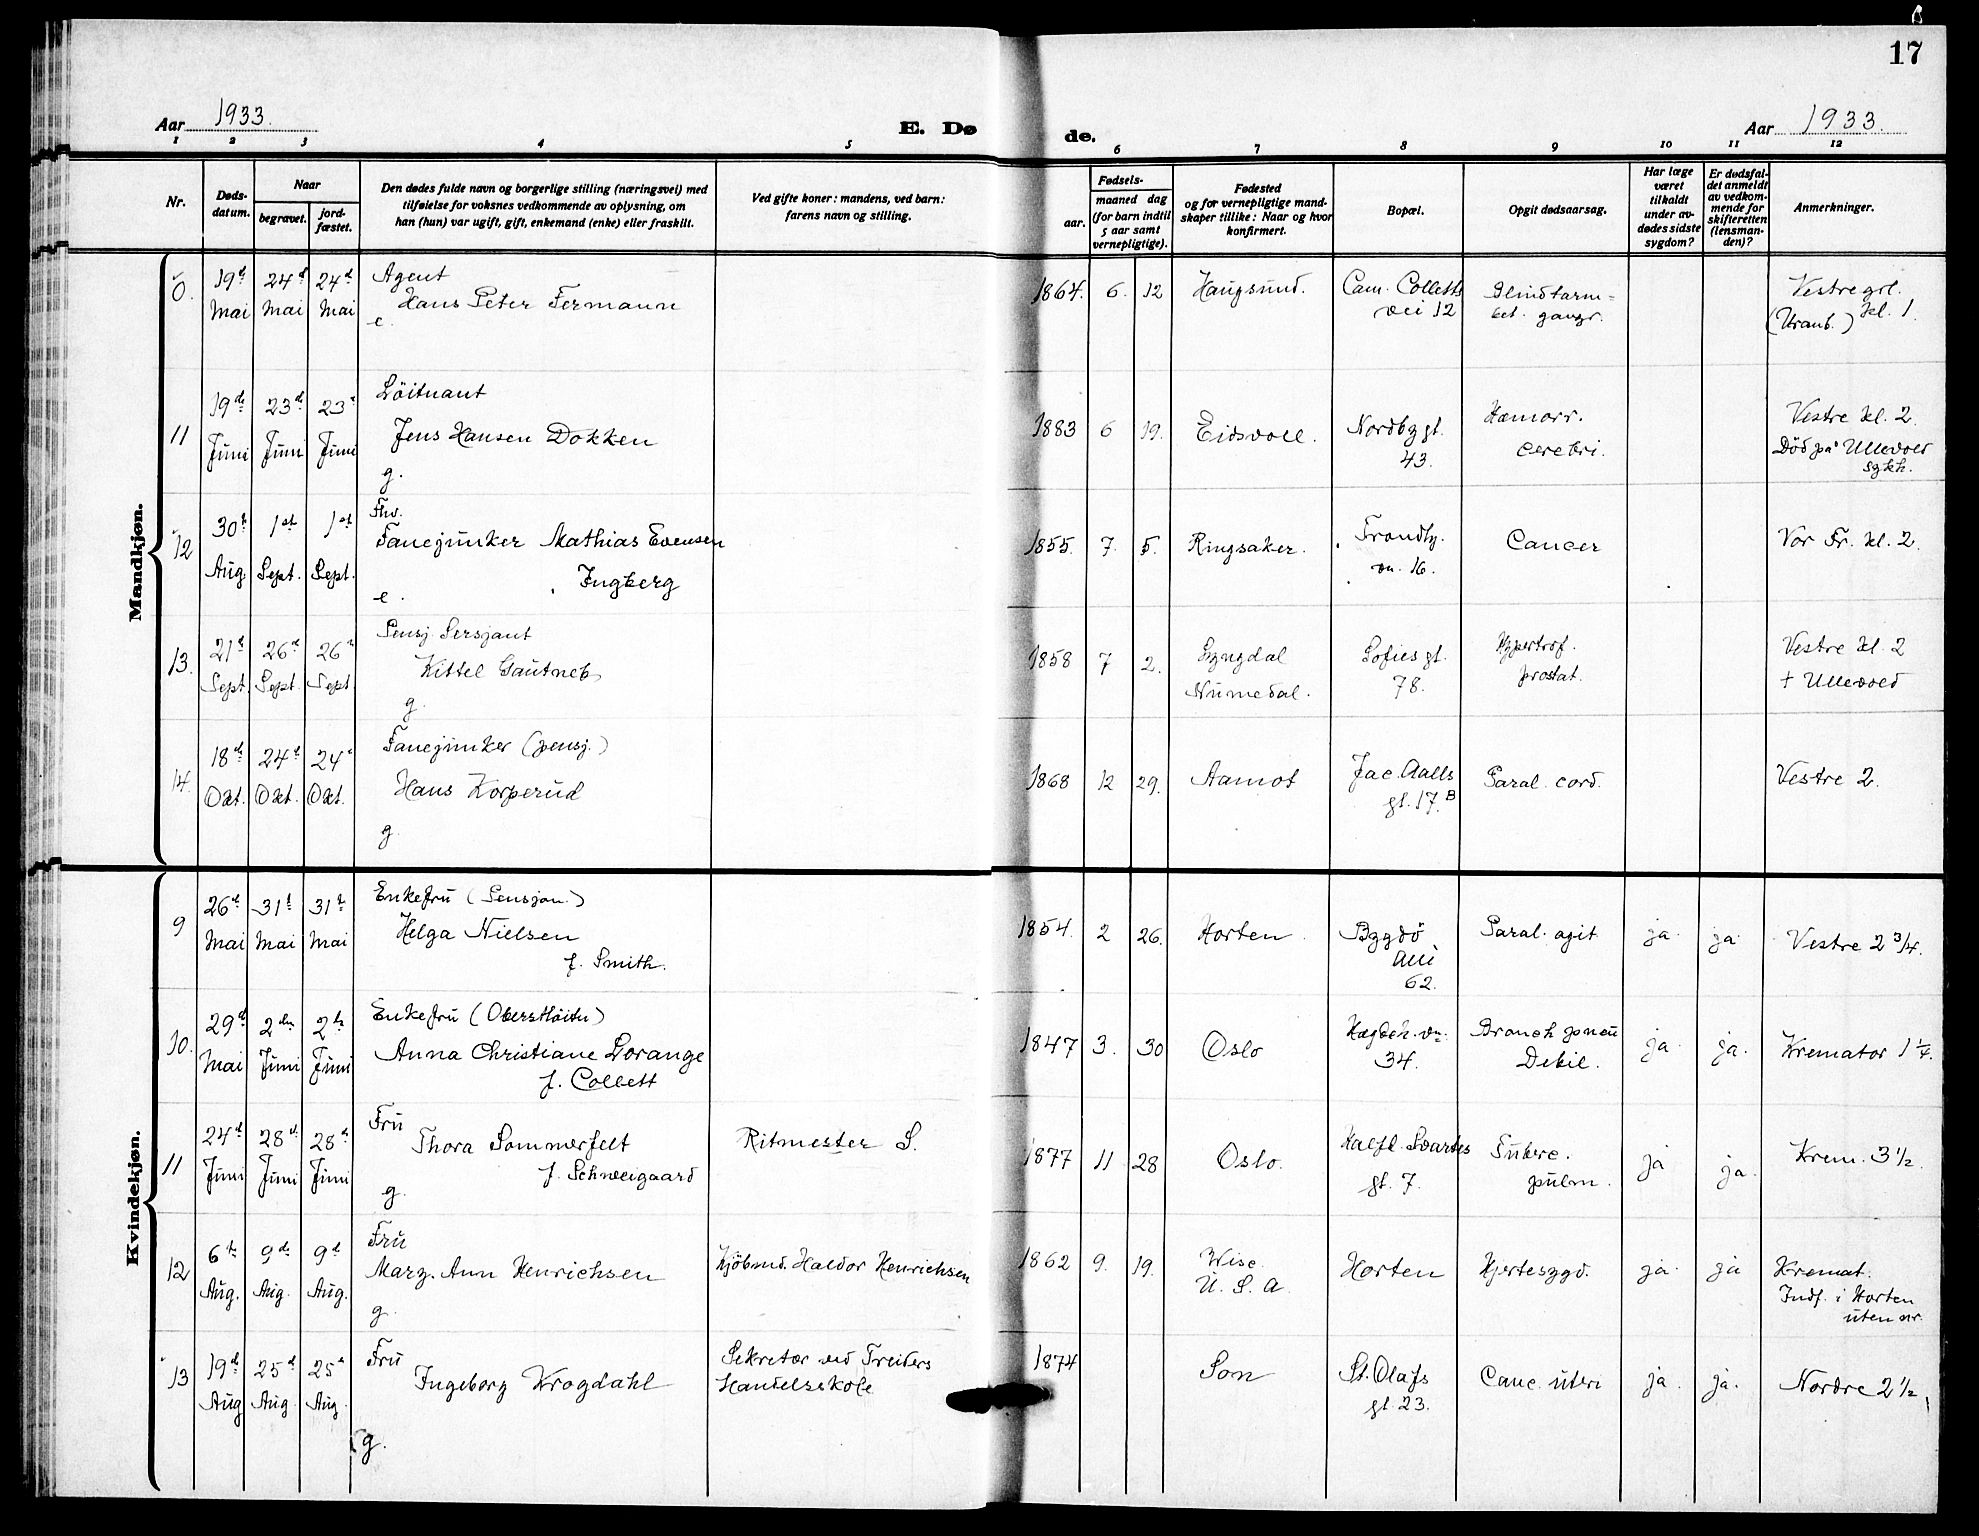 17
Aar 1933.
E. Dø
de.
Aar 1933.
1 2 3 4 5 6 7 8 9 10 11 12
Nr.
Døds-
datum.
Naar
begravet.
jord-
fæstet.
Den dødes fulde navn og borgerlige stilling (næringsvei) med
tilføielse for voksnes vedkommende av oplysning, om
han (hun) var ugift, gift, enkemand (enke) eller fraskilt.
Ved gifte koner: mandens, ved barn:
farens navn og stilling.
aar.
Fødsels-
maaned dag
(for barn indtil
5 aar samt
vernepligtige).
Fødested
og for vernepligtige mand-
skaper tillike: Naar og hvor
konfirmert.
Bopæl.
Opgit dødsaarsag.
Har læge
været
tilkaldt
under av-
dødes sidste
sygdom?
Er dødsfal-
det anmeldt
av vedkom-
mende for
skifteretten
(lensman-
den)?
Anmerkninger.
Mandkjøn.
0. 19d Mai 24d Mai 24d Mai
Agent
Hans Peter Fermann
e.
1864. 6. 12 Haugsund. Cam. Colletts
vei 12
Blindtarm-
bet. gangr.
Vestre grl.
(Uranb.) kl. 1.
11 19de Juni 23d Juni 23d Juni
Löitnant
Jens Hansen Dokken
g.
1883 6 19. Eidsvoll. Nordbygt.
43.
Hæmorr.
cerebri.
Vestre kl. 2
Död på Ullevold
sykh.
12 30t Aug. 1st Sept. 1st Sept.
Fhv.
Fanejunker Mathias Evensen
Ingberg
e.
1855. 7. 5. Ringsaker. Frondby.
vn. 16.
Cancer
Vor Fr. kl. 2.
13. 21d Sept. 26d Sept. 26d Sept.
Pensj. Sersjant
Kittel Gautneb
g.
1858 7 2. Lyngdal
Numedal.
Sofies gt.
78.
Hypertrof.
prostat.
Vestre kl. 2
† Ullevold
14. 18de Okt. 24d Okt. 24d Okt.
Fanejunker (pensj.)
Hans Korperud
g.
1868 12 29. Aamot Jac. Aalls
gt. 17.B
Paral. cord.
Vestre 2.
Kvindekjøn.
9 26d Mai 31t Mai 31t Mai
Enkefru (Pensjon.)
Helga Nielsen
f. Smith.
1854. 2 26. Horten. Bygdö
Alle
62.
Paral. agit ja. ja. Vestre 2 3/4.
10. 29d Mai 2den Juni 2den Juni
Enkefru (Oberstlöitn)
Anna Christiane Lorange
f. Collett
1847 3. 30 Oslo Hegdeh. vn.
34.
Bronch pneu
Debil. ja. ja. Kremator 1 1/4.
11 24d Juni 28d Juni 28d Juni
Fru
Thora Sommerfelt
f. Schweigaard
g.
Ritmester S.
1877 11 28 Oslo. Halfd. Svartes
gt. 7.
Tuberc.
pulm. ja ja. Krem. 3 1/2.
12 6te Aug. 9de Aug. 9d Aug.
Fru
Marg. Ann Henrichsen
g.
Kjöbmd. Haldor Henrichsen
1862 9. 19. Wisc.
U. S. A.
Horten Hjertesygd. ja. ja Kremat.
Indf. i Horten
uten nr.
13 19d Aug 25d Aug. 25d Aug.
Fru
Ingeborg Krogdahl
g.
Sekretær ved Treiders
Handelsskole
1874 Son St. Olafs
gt. 23.
Canc. uteri ja. ja. Nordre 2 1/2